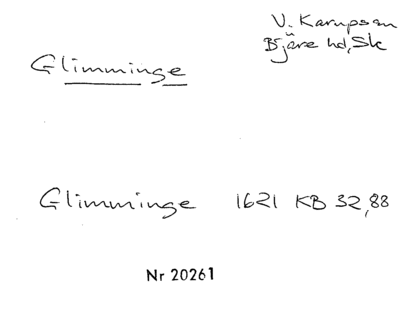 V. Karupssn
Bjäre hd, Sk
Glimminge
Glimminge 1621 KB 32,88
Nr 20261